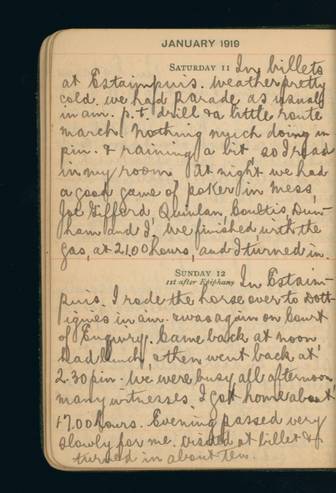 JANUARY 1919
SATURDAY 11 In billets
at Estaimpuis. Weather pretty
cold. we had parade as usual
in am. p.t. drill & a little route
march. Nothing much doing in
p.m. & raining a bit, so I read
in my room. at night we had
a good game of poker in mess,
Joe Gifford, Quinlan, Dun-
ham and I, we finished with the
gas, at 21.00 hours, and I turned in.
SUNDAY 12
1st after Epiphany In Estaim-
puis. I rode the horse over to Dott-
ignies in am. & was again on Court
of Enquiry. Came back at noon
had lunch, & then went back at
2.30 pm. We were busy all afternoon
many witnesses. I got home about
17.00 hours. Evening passed very
slowly for me. at billet &
turned in about ten.